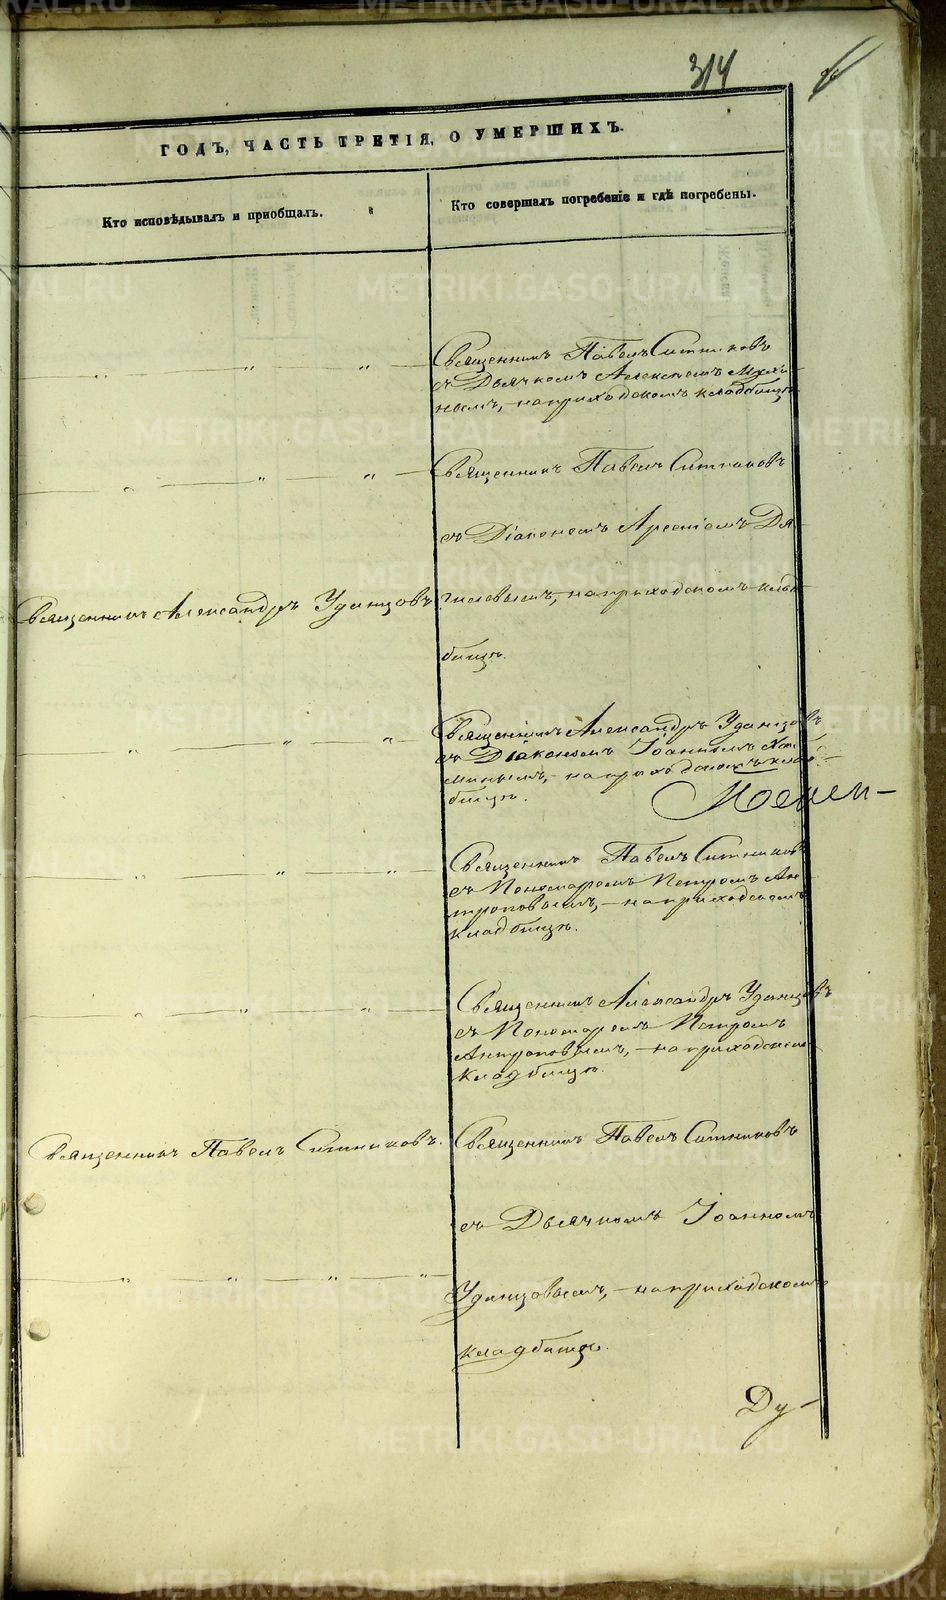 314
ГОДЪ, ЧАСТЬ ТРЕТІЯ, О УМЕРШИХЪ.
Кто исповѣдывалъ и пріобщалъ.
Кто совершалъ погребеніе и гдѣ погребены.
Священникъ Павелъ Ситниковъ
съ Дьячкомъ Алексѣемъ
нымъ, – на приходскомъ кладбищѣ
Священникъ Павелъ Ситниковъ
съ Діакономъ Арсеніемъ Дя
гилевымъ, – на приходскомъ клад
бищѣ.
Священникъ Александръ Удинцовъ
Священникъ Александръ Удинцовъ
съ Діакономъ Іоанномъ Хи
миннымъ, – на приходскомъ клад-
бищѣ.
Священникъ Павелъ Ситниковъ
съ Пономаремъ Петромъ Ан
троповымъ, – на приходскомъ
кладбищѣ.
Священникъ Александръ Удинцовъ
съ Пономаремъ Петромъ
Антроповымъ, – на приходскомъ
кладбищѣ.
Священникъ Павелъ Ситниковъ.
Священникъ Павелъ Ситниковъ
съ Дьячкомъ Іоанномъ
Удинцовымъ, – на приходскомъ
кладбищѣ.
Ду-
METRIKI.GASO-URAL.RU